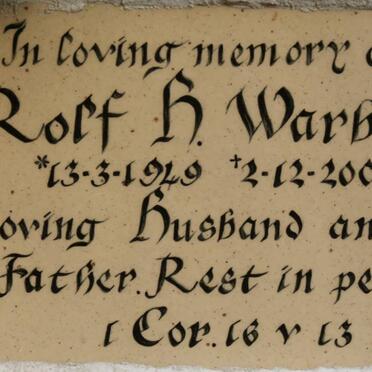 In loving memory o
Rolf H. Warb
*13-3-1949 †2-12-200
oving Husband an
Father. Rest in pe
1 Cor. 16 v 13